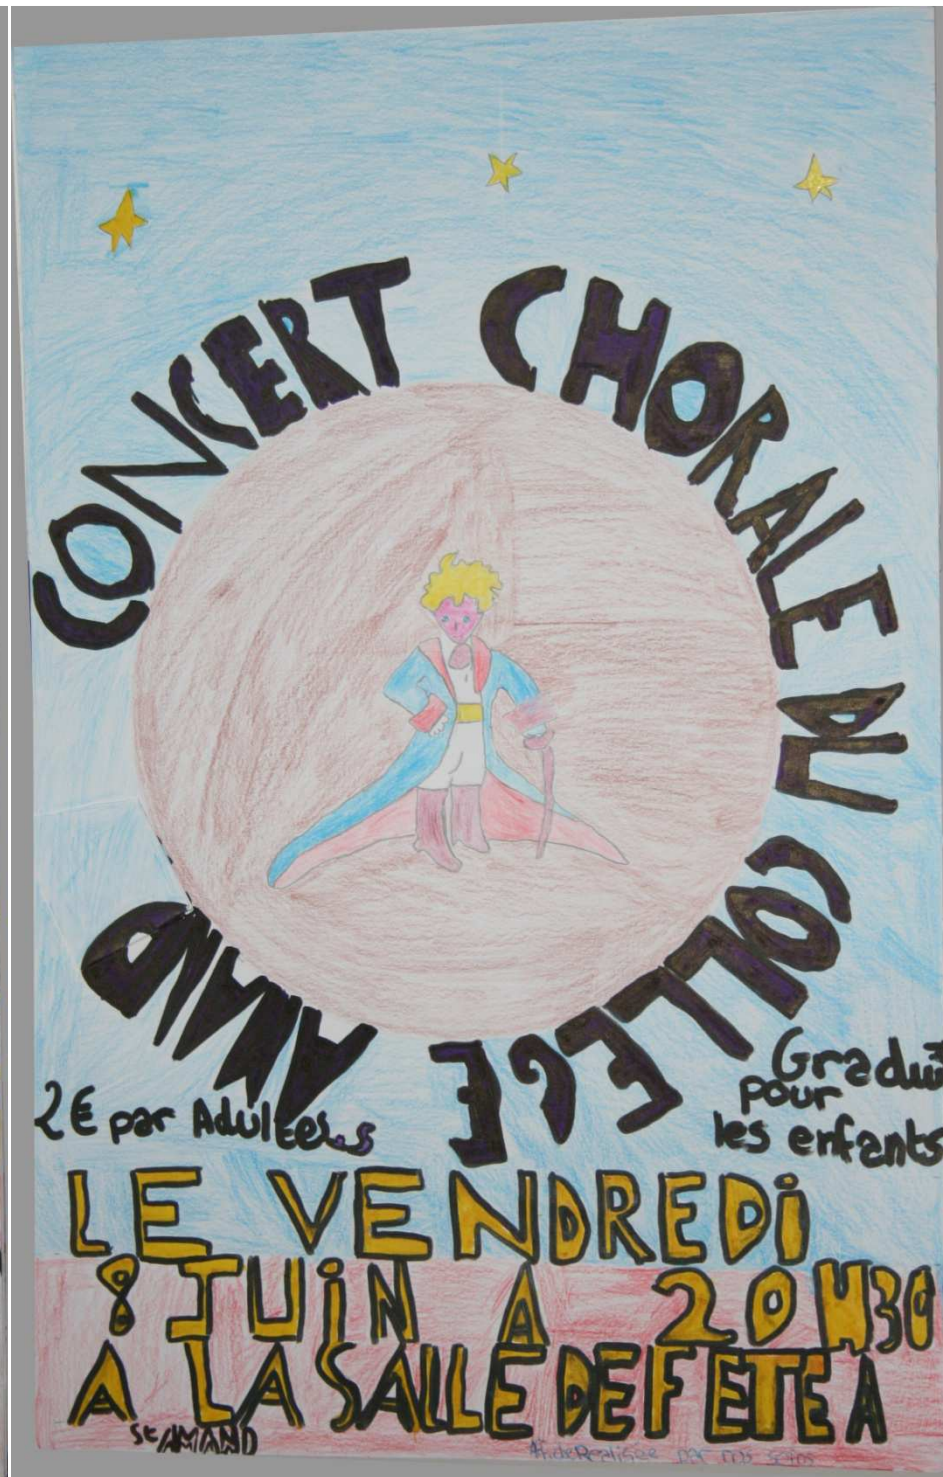 CONCERT CHORALE DU COLLEGE AMAND
2€ par Adultes
Graduit
pour
les enfants
LE VENDREDi
8 JUiN A 20H30
A LA SALLE DE FETE A
St AMAND
par nos soins